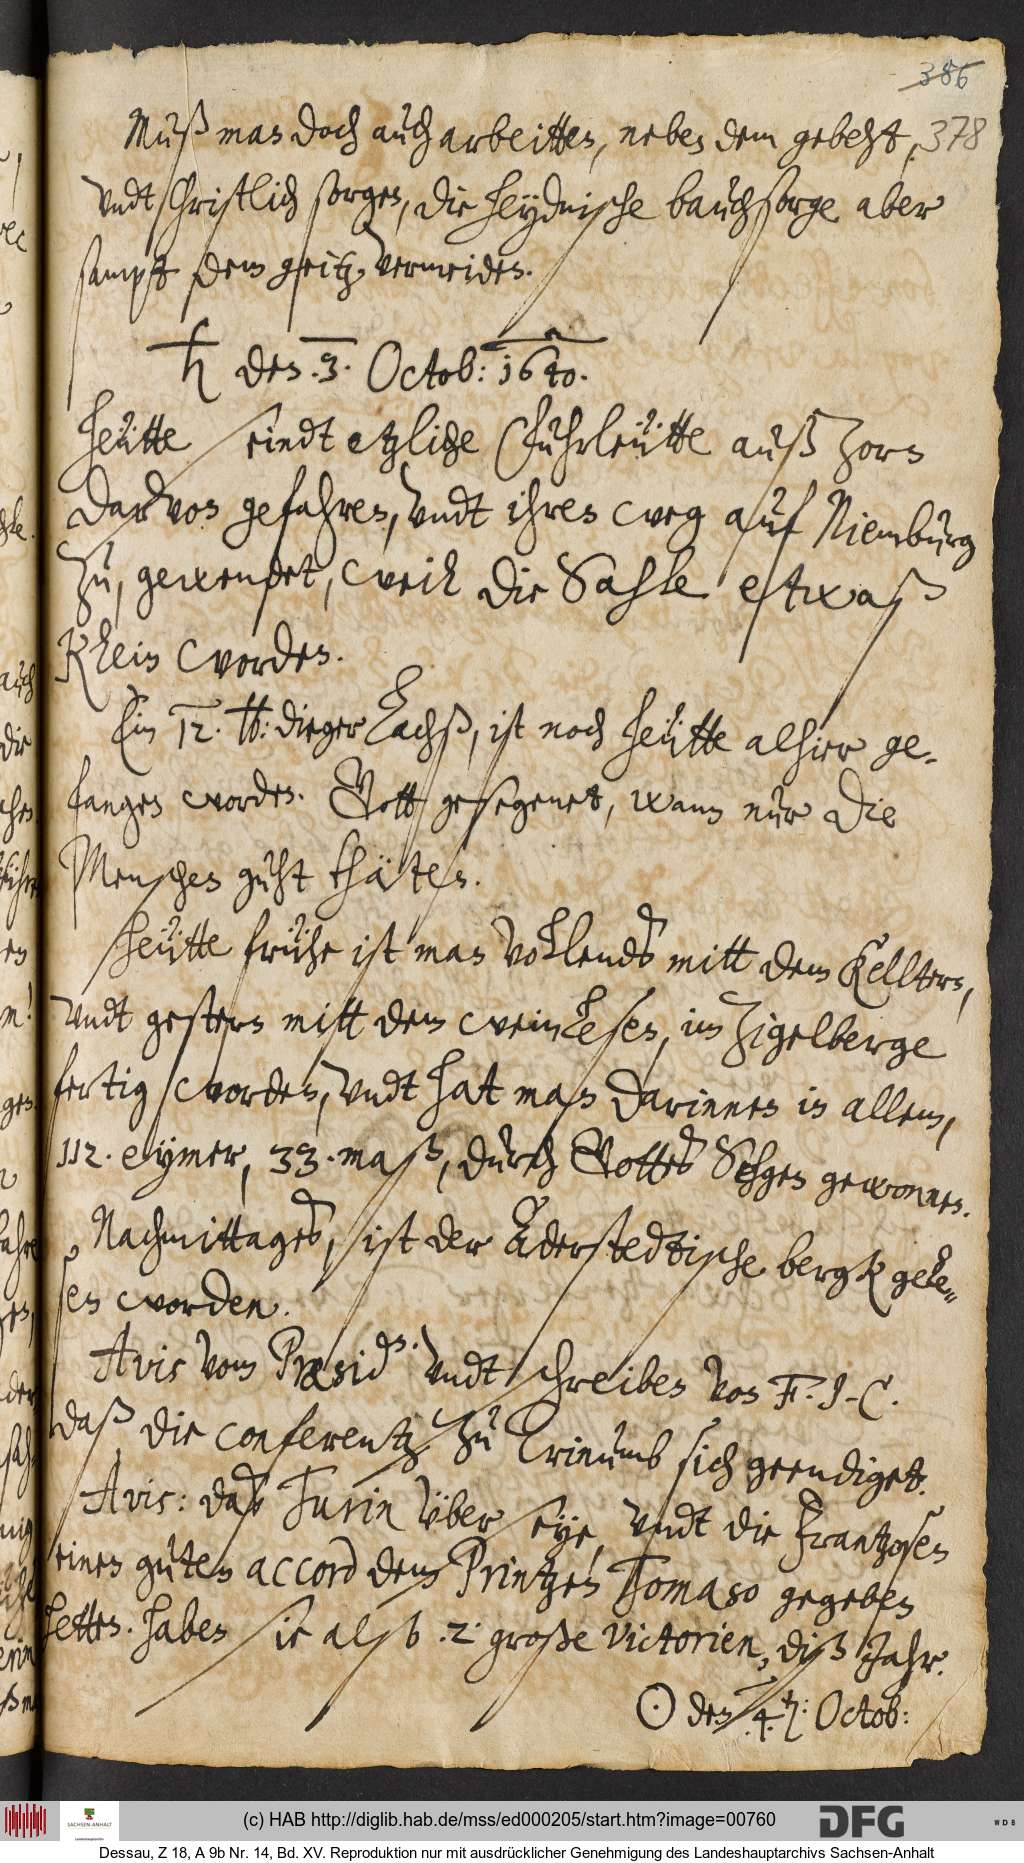 386
Muß man doch auch arbeitten, neben dem gebeht, 378
undt Christlich sorgen, die heydnische bauchsorge aber
sampt dem geitz, vermeiden.
♄ den .3. Octob: 1640.
Heütte seindt etzliche Fuhrleütte auß zorn
darvon gefahren, undt ihren weg auf Niemburg
zu, gewendet, weil die Sahle etwaß
klein worden.
Ein 12. ℔: diger Lachß, ist noch heütte alhier ge-
fangen worden. Gott gesegenet, wann nur die
Menschen guht thäten.
Heütte frühe ist man vollends mitt dem Keltern,
undt gestern mitt dem weinlesen, im Zigelberge
fertig worden, undt hat man darinnen in allem,
112. eymer, 33. maß, durch Gottes Sehgen gewonnen.
Nachmittages, ist der Aderstedtische bergk gele-
sen worden.
Avis vom Præsid.en undt schreiben von F. J. C.
daß die conferentz zu Trinumb sich geendiget.
Avis: das Turin über seye, undt die Frantzosen
einen guten accord dem Printzen Tomaso gegeben
hetten. haben sie also .2. große victorien, diß Jahr.
☉ den .4. ten: Octob:
(c) HAB http://diglib.hab.de/mss/ed000205/start.htm?image=00760
SACHSEN-ANHALT
DFG
WDB
Dessau, Z 18, A 9b Nr. 14, Bd. XV. Reproduktion nur mit ausdrücklicher Genehmigung des Landeshauptarchivs Sachsen-Anhalt